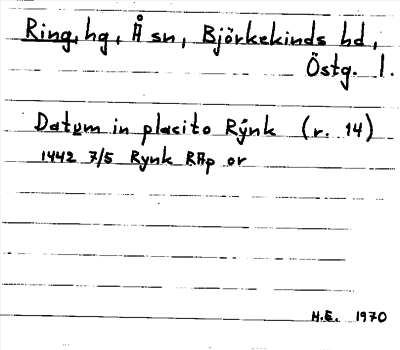 Ring, hg, Å sn, Björkekinds hd,
Östg. l.
Datum in placito Rýnk (r. 14)
1442 7/5 Rynk RAp or
H.E. 1970